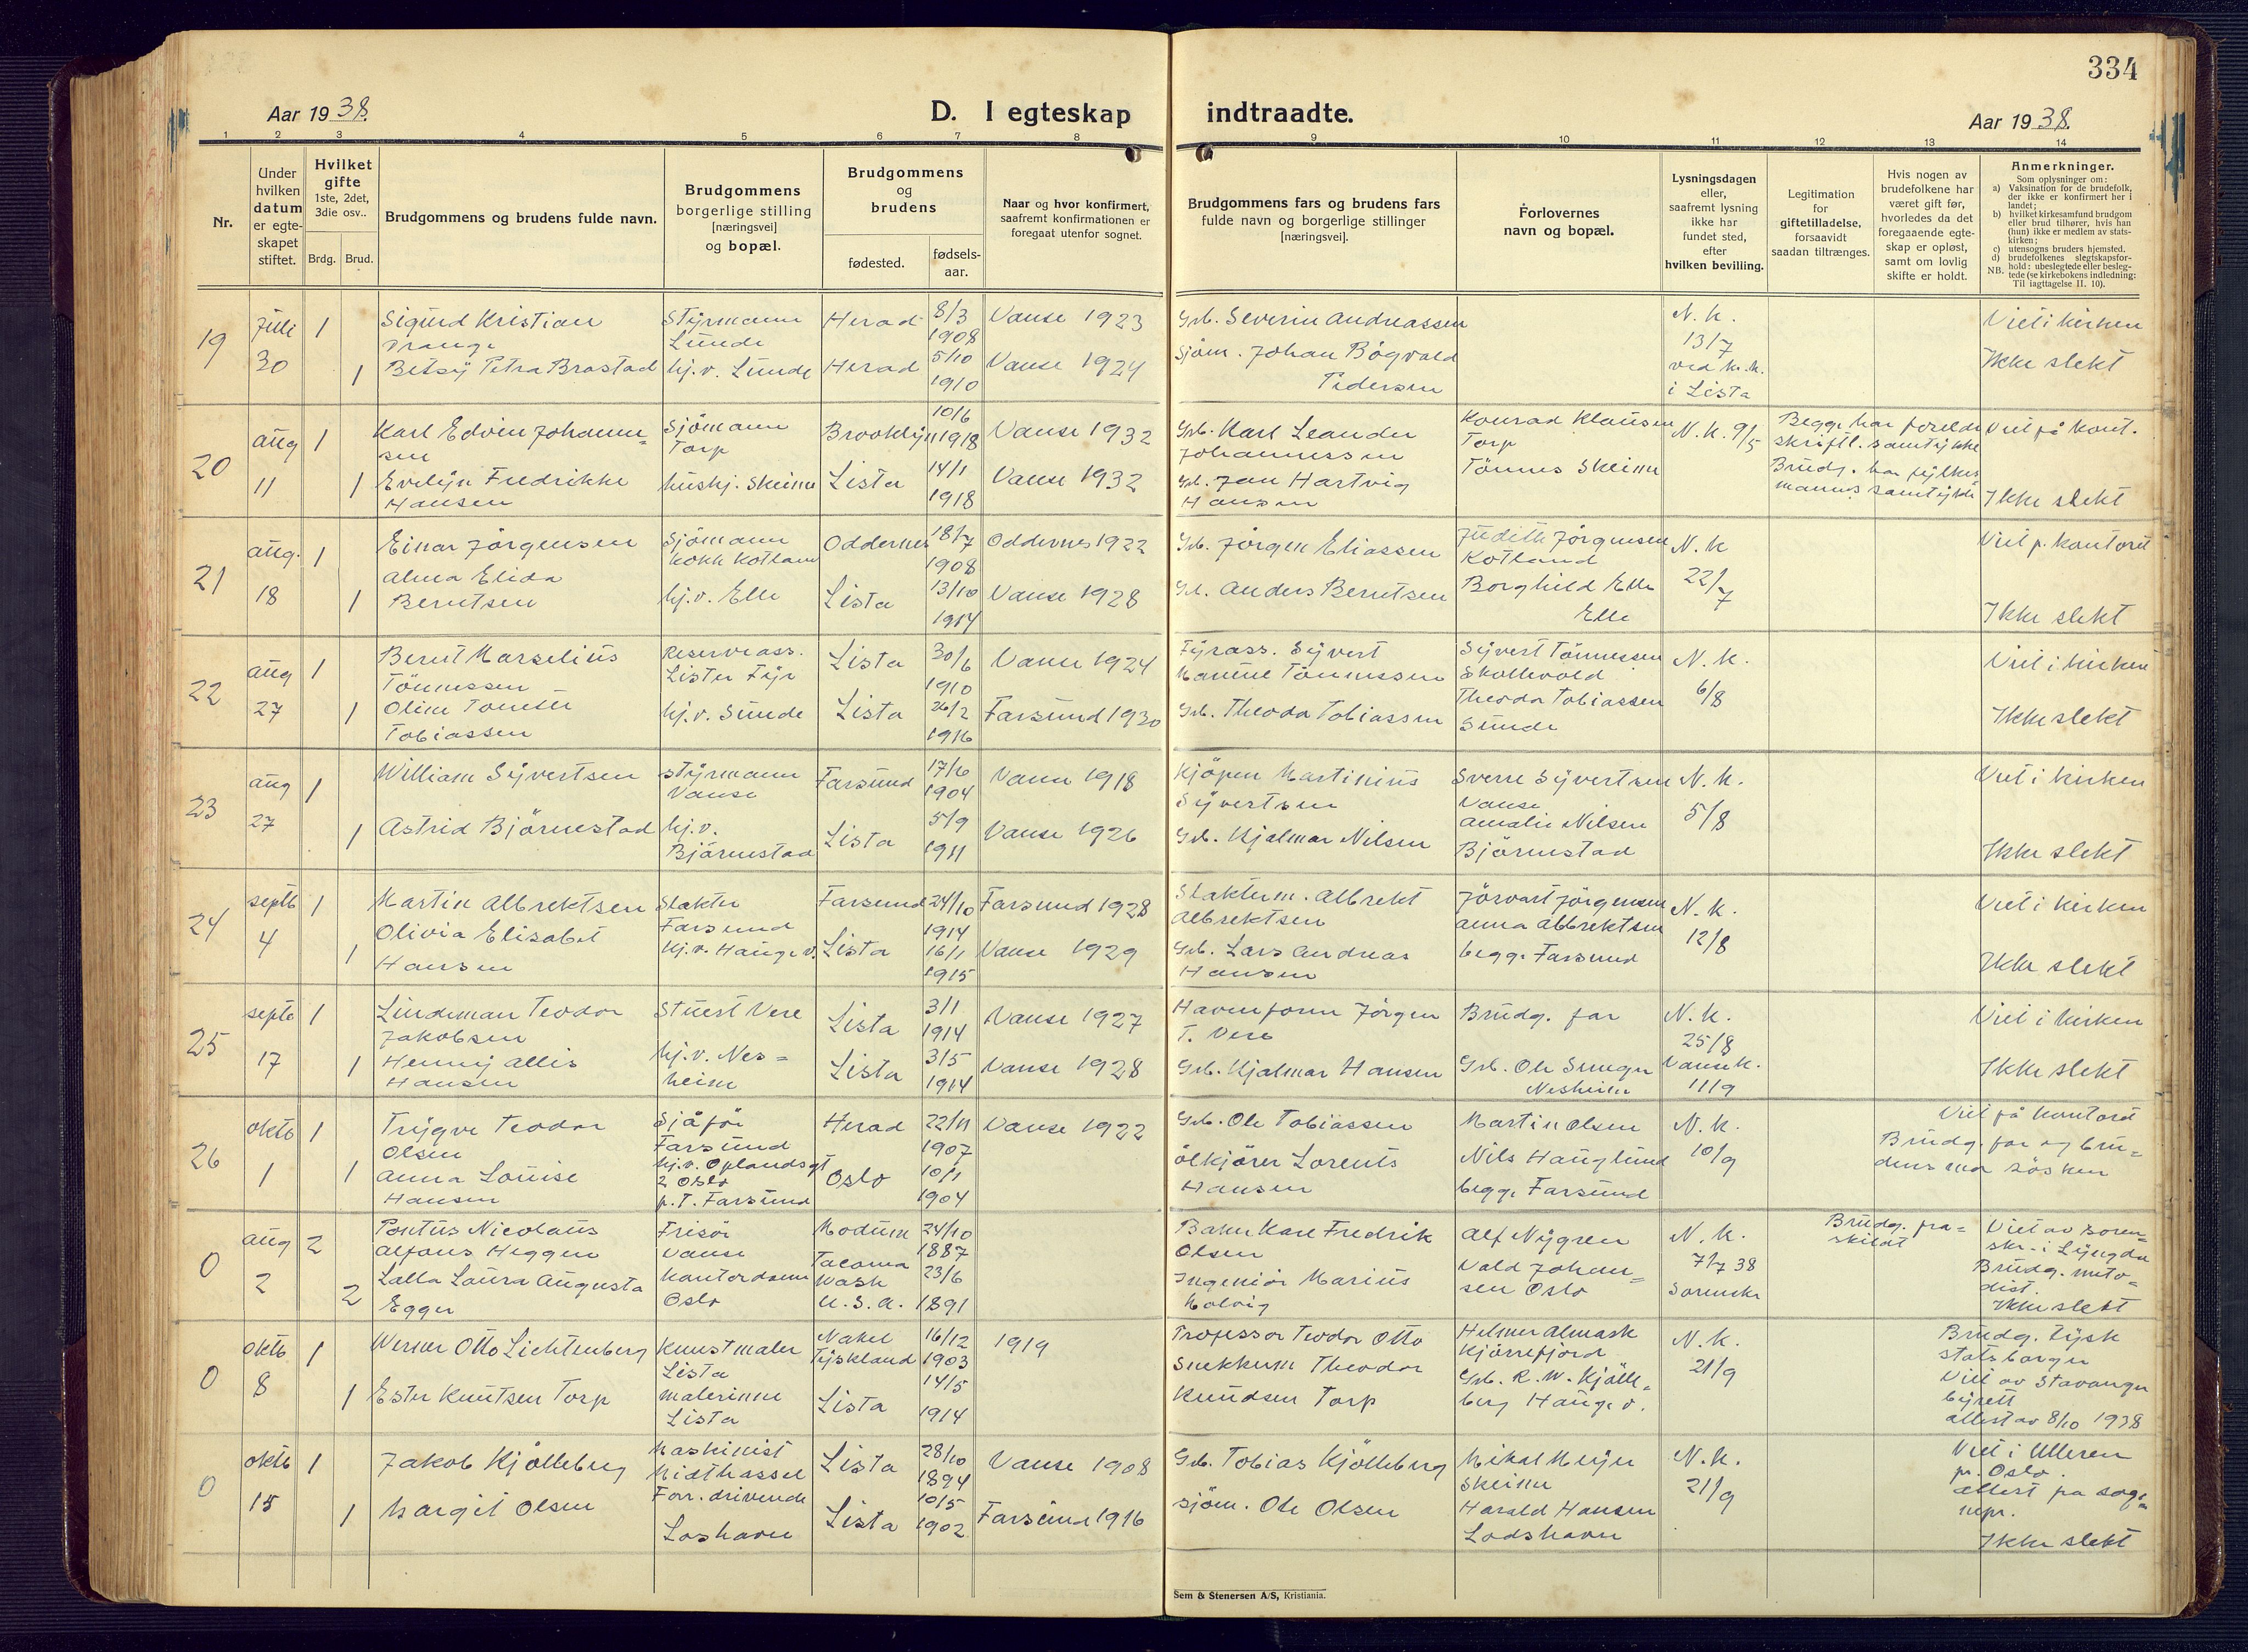 334
Aar 1938.
D. I egteskap indtraadte.
Aar 1938.
1 2 3 4 5 6 7 8 9 10 11 12 13 14
Nr.
Under
hvilken
datum
er egte-
skapet
stiftet.
Hvilket
gifte
1ste, 2det,
3die osv..
Brdg. Brud.
Brudgommens og brudens fulde navn.
Brudgommens
borgerlige stilling
[næringsvei]
og bopæl.
Brudgommens
og
brudens
fødested.
fødsels-
aar.
Naar og hvor konfirmert,
saafremt konfirmationen er
foregaat utenfor sognet.
Brudgommens fars og brudens fars
fulde navn og borgerlige stillinger
[næringsvei].
Forlovernes
navn og bopæl.
Lysningsdagen
eller,
saafremt lysning
ikke har
fundet sted,
efter
hvilken bevilling.
Legitimation
for
giftetilladelse,
forsaavidt
saadan tiltrænges.
Hvis nogen av
brudefolkene har
været gift før,
hvorledes da det
foregaaende egte-
skap er opløst,
samt om lovlig
skifte er holdt.
Anmerkninger.
Som oplysninger om:
a) Vaksination for de brudefolk,
der ikke er konfirmert her i
landet;
b) hvilket kirkesamfund brudgom
eller brud tilhører, hvis han
(hun) ikke er medlem av stats-
kirken;
c) utensogns bruders hjemsted.
d) brudefolkenes slegtskapsfor-
hold: ubeslegtede eller besleg-
NB. tede (se kirkebokens indledning:
Til iagttagelse II. 10).
19
Juli
30
1
1
Sigurd Kristian
Prange
Betsy Petra Brastad
Styrmann
Lunde
hj.v. Lunde
Herad
Herad
8/3
1908
5/10
1910
Vanse 1923
Vanse 1924
Grb. Severin Andreassen
Sjøm. Johan Bögvald
Pedersen
N. k.
13/7
ved kr.k.
i Lista
Viet i kirken
Ikke slekt
20
aug
11
1
1
Karl Edvin Johannes=
sen
Evelyn Fredrikke
Hansen
Sjömann
Torp
hushj. Skeime
Brooklyn
Lista
10/6
1918
14/1
1918
Vanse 1932
Vanse 1932
Grb. Karl Leander
Johannessen
Gb. Jan Hartvig
Hansen
Konrad Klausen
Torp
Tönnes Skeime
N. K. 9/5
Begge har foreldr
skriftl. samtykke
Brudg. har fylkes
manns samtykke
Viet på kont.
Ikke slekt
21
aug.
18
1
1
Einar Jörgensen
Alma Elida
Berntsen
Sjömann
kokk Kotland
hj.v. Elle
Oddernes
Lista
18/7
1908
13/10
1914
Oddernes 1922
Vanse 1928
Grb. Jörgen Eliassen
Gb. Anders Berntsen
Judith Jörgensen
Kotland
Borghild Elle
Elle
N. k
22/7
Viet p. kontoret
Ikke slekt
22
aug
27
1
1
Bernt Marselius
Tönnessen
Oline Tomette
Tobiassen
Reserveass.
Lister Fyr
hj.v. Sunde
Lista
Lista
30/6
1910
26/2
1916
Vanse 1924
Farsund 1930
Fyrass. Syvert
Manne Tönnessen
Grb. Theodor Tobiassen
Syvert Tönnessen
Skollevold
Theodor Tobiassen
Sunde
N. K.
6/8
Viet i kirken
Ikke slekt
23
aug
27
1
1
William Syvertsen
Astrid Björnestad
Styrmann
Vanse
hj.v.
Björnestad
Farsund
Lista
17/6
1904
5/9
1911
Vanse 1918
Vanse 1926
Kjöpm Martinius
Syvertsen
Grb. Hjalmar Nilsen
Sverre Syvertsen
Vanse
Amalie Nilsen
Björnestad
N. K.
5/8
Viet i kirken
Ikke slekt
24
septb
4
1
1
Martin Albrektsen
Olivia Elisabet
Hansen
Slakter
Farsund
hj.v. Hauge v.
Farsund
Lista
24/10
1914
16/1
1915
Farsund 1928
Vanse 1929
Slakterm. Albrekt
Albrektsen
Grb. Lars Andreas
Hansen
Jörvart Jörgensen
Anna Albrektsen
begge Farsund
N. K.
12/8
Viet i kirken
Ikke slekt
25
septb
17
1
1
Lindeman Teodor
Jakobsen
Henny Allis
Hansen
Stuert Vere
hj.v. Nes=
heim
Lista
Lista
3/1
1914
3/5
1914
Vanse 1927
Vanse 1928
Havneform Jörgen
T. Vere
Grb. Hjalmar Hansen
Brudg. far
Grb. Ole Sunger
Nesheim
N. K.
25/8
Vanse k.
11/9
Viet i kirken
Ikke slekt
26
oktb
1
1
1
Trygve Teodor
Olsen
Anna Louise
Hansen
Sjåför
Farsund
hj.v. Oplandsgt
2 Oslo
p.T. Farsund
Herad
Oslo
22/11
1907
10/1
1904
Vanse 1922
Grb. Ole Tobiassen
Ölkjörer Lorents
Hansen
Martin Olsen
Nils Hauglund
begge Farsund
N. K.
10/9
Viet på kontoret
Brudg. far og bru=
dens mor sösken
0
aug
2
2
2
Pontus Nicolaus
Alfons Heggen
Lalla Laura Augusta
Egger
Frisör
Vanse
Kontordame
Oslo
Modum
Tacoma
Wash
U.S.A.
24/10
1887
23/6
1891
Baker Karl Fredrik
Olsen
Ingeniör Marius
Holvig
Alf Nygren
Vald Johan=
sen Oslo
N. K.
7/7 38
Sorenskr
Brudg. fra=
skildt
Viet av soren=
skr. i Lyngda
Brudg. meto=
dist.
Ikke slekt
0
oktb
8
1
1
Werner Otto Lichtenberg
Ester Knutsen Torp
Kunstmaler
Lista
malerinne
Lista
Nakel
Tyskland
Lista
16/12
1903
14/5
1914
1919
Professor Teodor Otto
Snekkerm Theodor
Knudsen Torp
Helmer Almask
Kjörrefjord
Grb. R. W. Kjölle=
berg Hauge v.
N. K.
21/9
Brudg. tysk
statsborger
Viet av Stavanger
byrett
attest av 8/10 1938
0
oktb
15
1
1
Jakob Kjölleberg
Margit Olsen
Maskinist
Midthassel
Forr. drivende
Loshavn
Lista
Lista
28/10
1894
10/5
1902
Vanse 1908
Farsund 1916
Grb. Tobias Kjölleberg
Sjöm. Ole Olsen
Mikal Meyer
Skeime
Harald Hansen
Lodshavn
N. K.
21/9
Viet i Ulleren
pr. Oslo.
attest fra sogne=
pr.
Ikke slekt
Sem & Stenersen A/S, Kristiania.